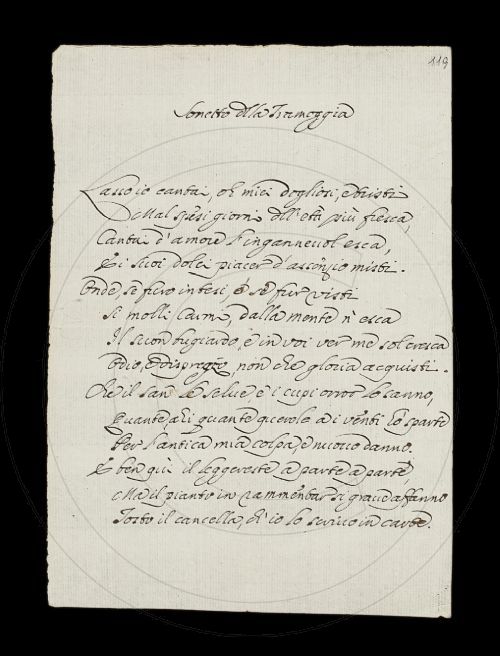 119
Sonetto della Tramoggia
Lasso io cantai, de' miei dogliosi, e tristi
Mal spesi giorni dell'età più fresca,
Cantai d'amore l'ingannevol esca,
E i suoi dolci piacer d'assenzio misti.
Onde, se fiero intesi o se fur visti
Sì molli carmi, dalla mente n'esca
Il suon bugiardo, e in voi ver me sol cresca
Odio, e dispregio, non che gloria acquisti.
Che il san le selve, e i cupi orror lo sanno,
Quante, ahi quante querele a i venti ho sparte
Per l'antica mia colpa, e nuovo danno.
E ben qui il leggereste a parte a parte
Ma il pianto in rammentar sì grave affanno
Tosto il cancella, ch'io lo scrivo in carte.